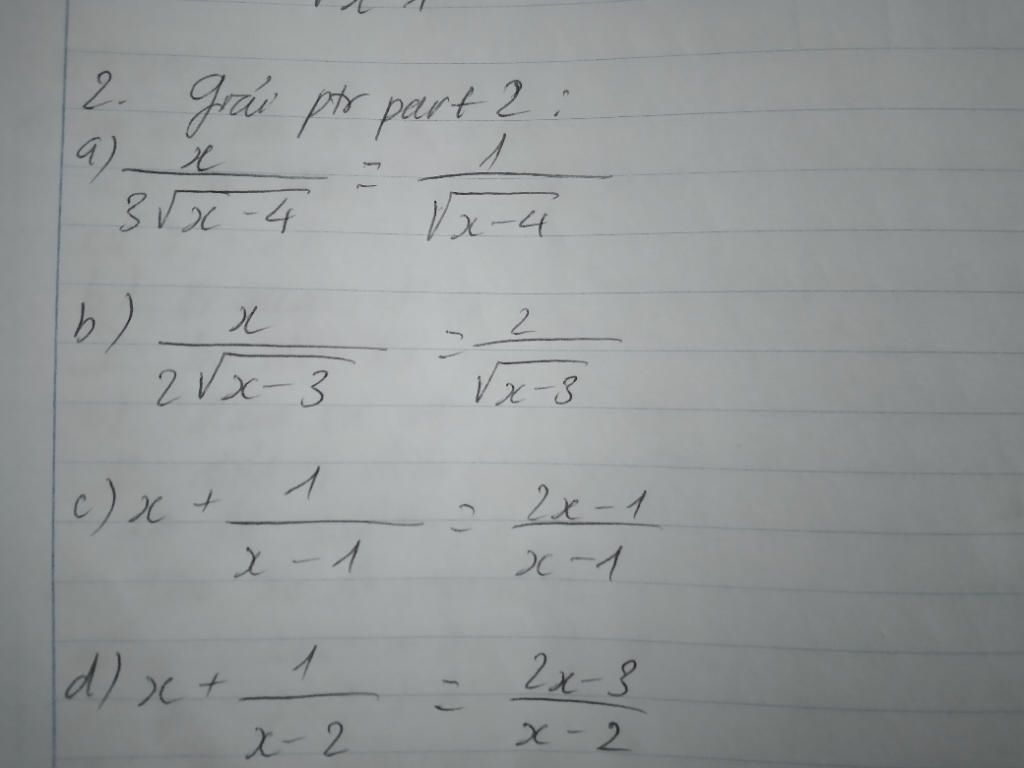 2. Giải ptr part 2 :
a) x / (3√(x-4)) = 1 / √(x-4)
b) x / (2√(x-3)) = 2 / √(x-3)
c) x + 1 / (x-1) = (2x-1) / (x-1)
d) x + 1 / (x-2) = (2x-3) / (x-2)